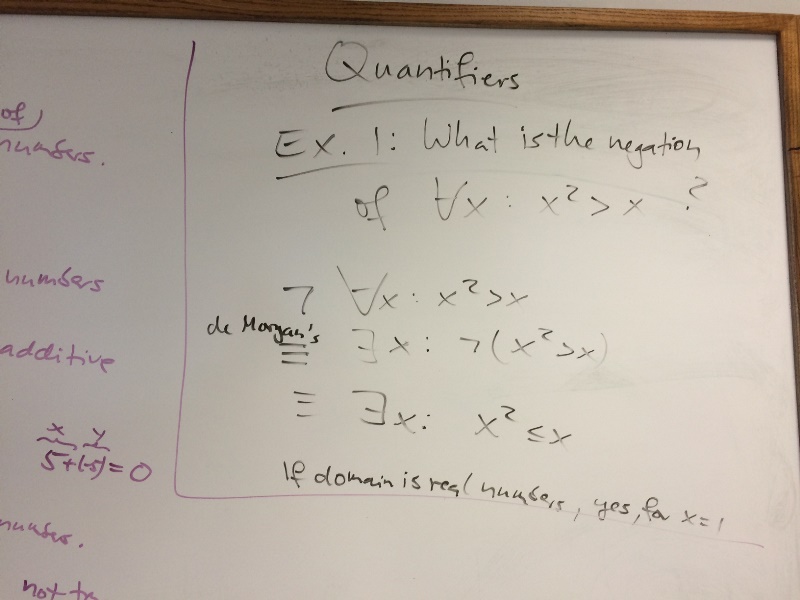 of)
numbers.
numbers
additive
x y
5+(-5)=0
numbers.
not
Quantifiers
Ex. 1: What is the negation
of ∀x: x²>x ?
¬ ∀x: x²>x
de Morgan's
≡ ∃x: ¬(x²>x)
≡ ∃x: x²≤x
If domain is real numbers, yes, for x=1